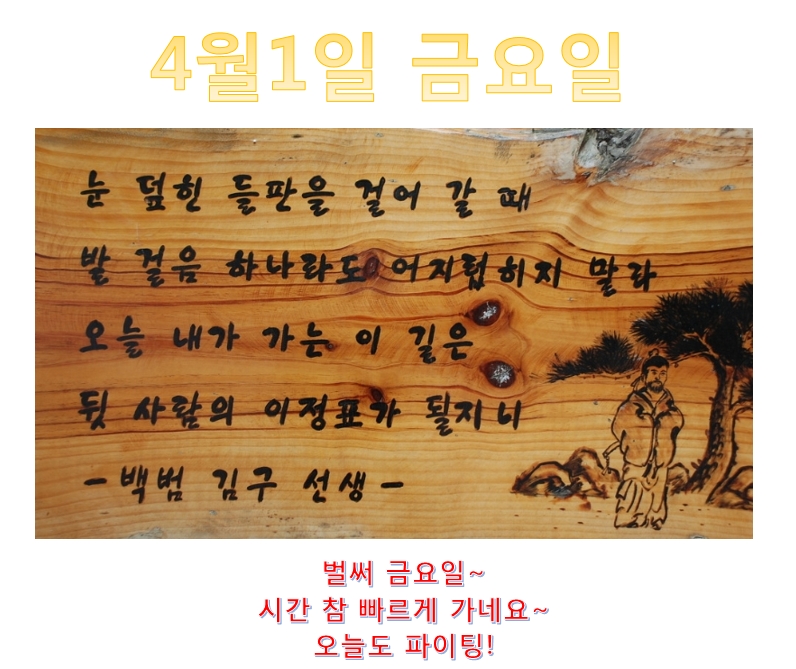 4월1일 금요일
눈 덮힌 들판을 걸어 갈 때
발 걸음 하나라도 어지럽히지 말라
오늘 내가 가는 이 길은
뒷 사람의 이정표가 될지니
-백범 김구 선생-
벌써 금요일~
시간 참 빠르게 가네요~
오늘도 파이팅!